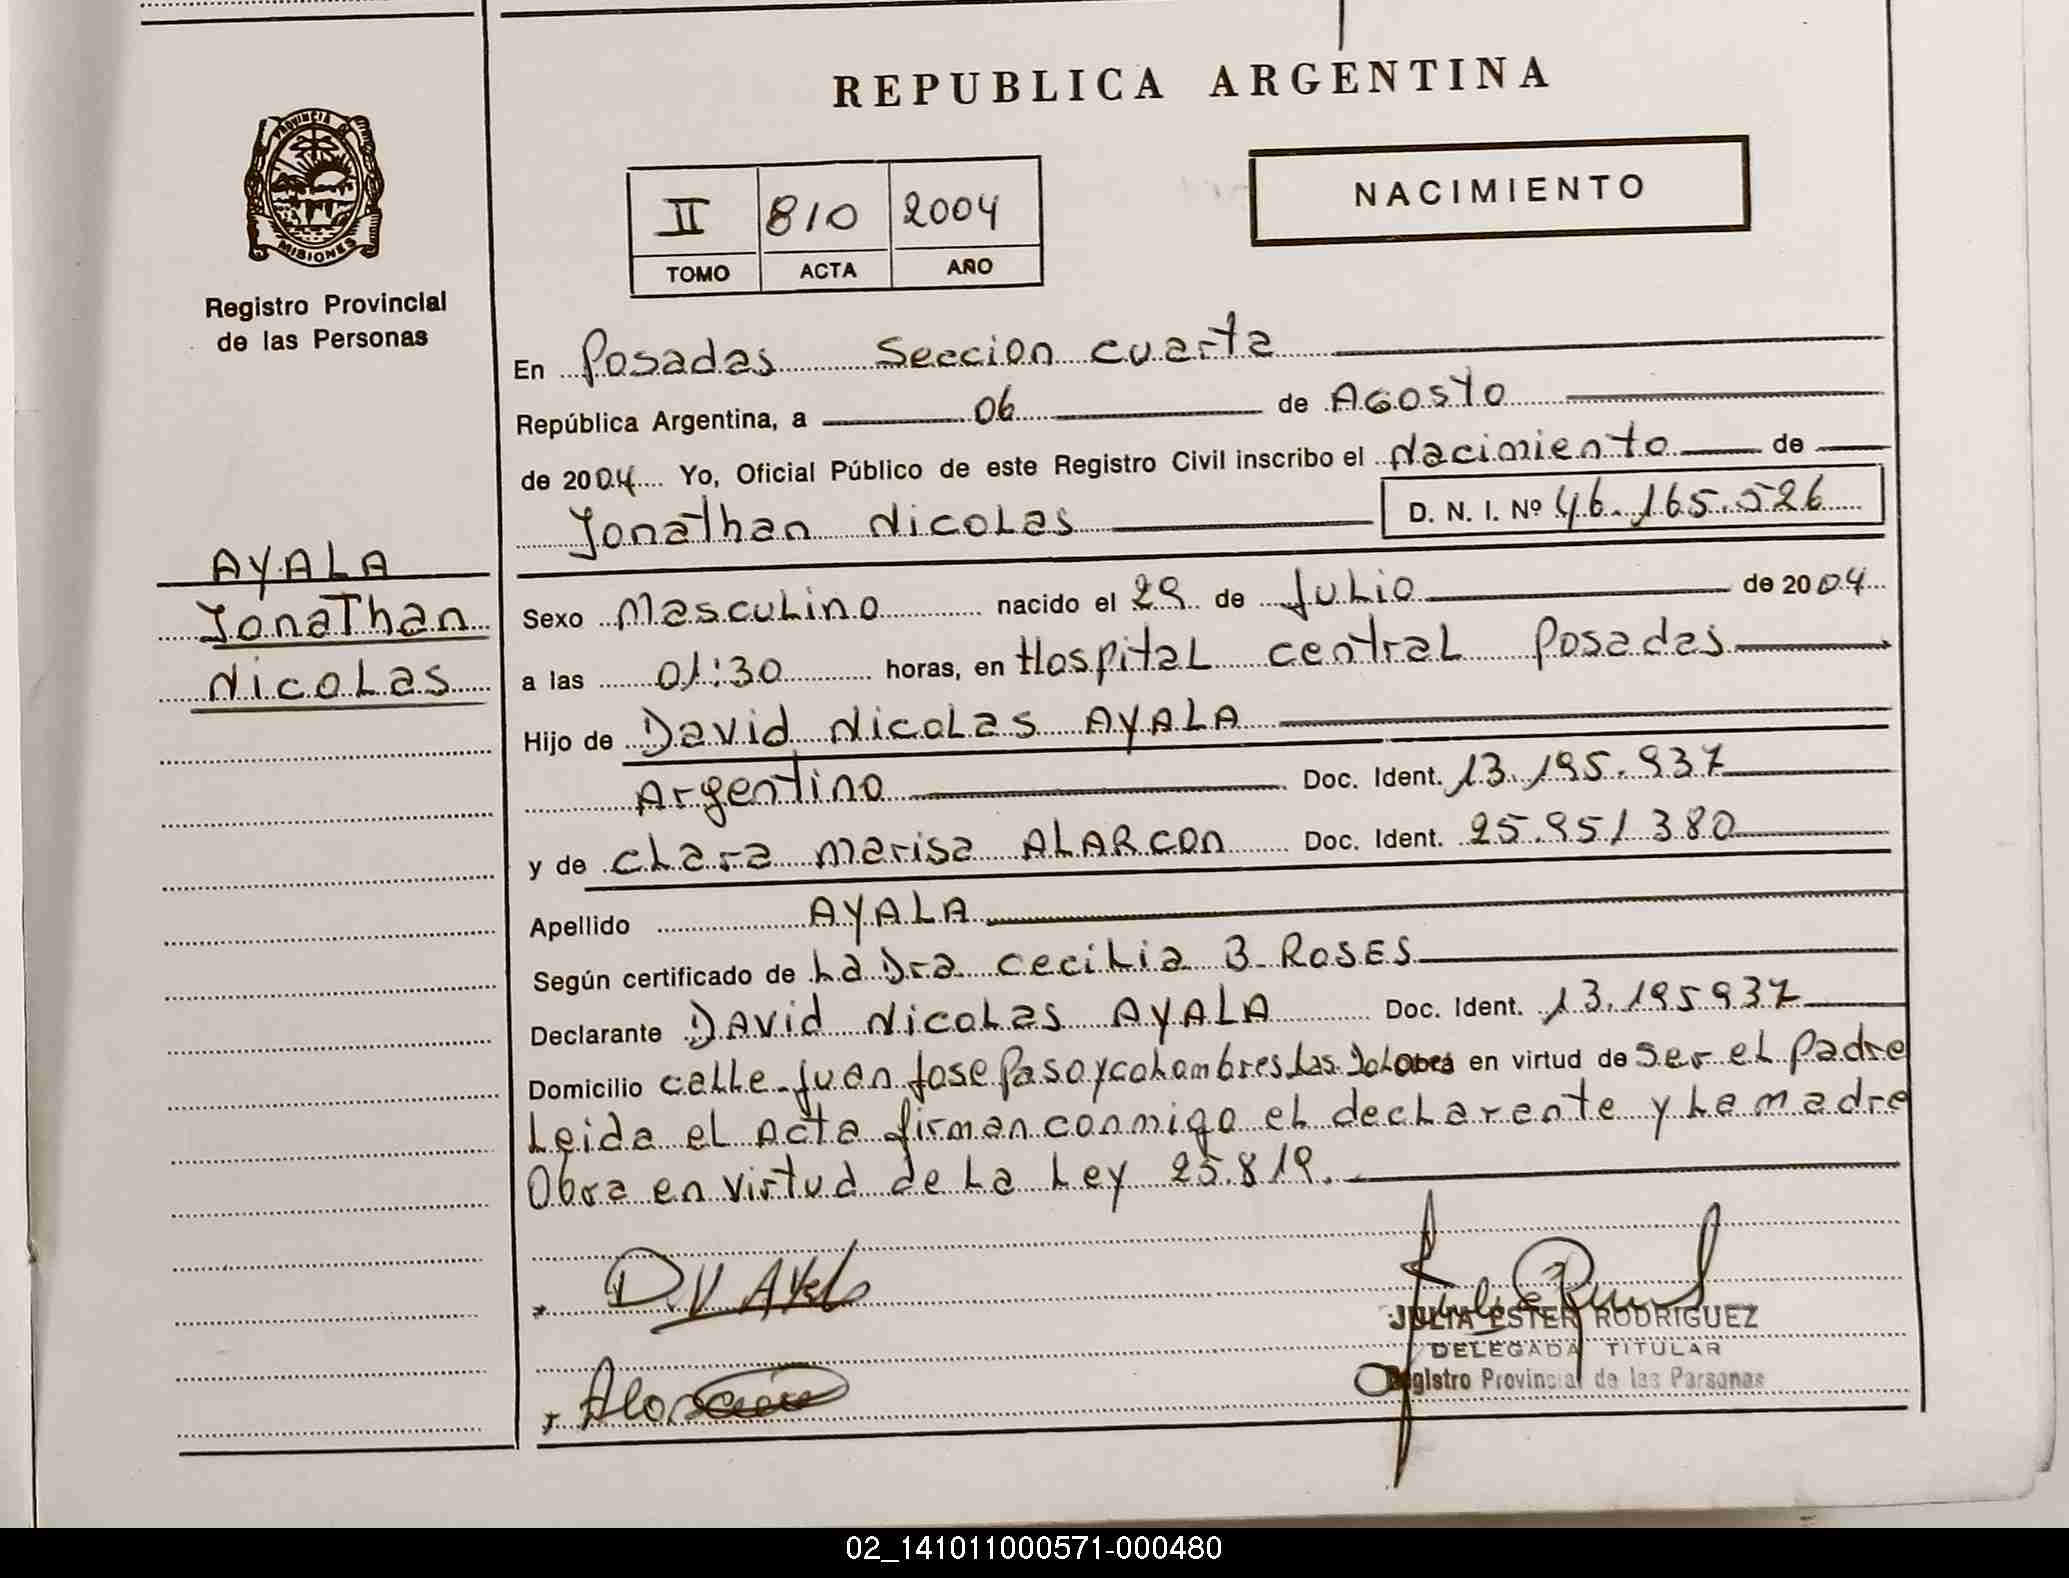 REPUBLICA ARGENTINA
PROVINCIA DE
MISIONES
Registro Provincial
de las Personas
NACIMIENTO
II 810 2004
TOMO ACTA AÑO
En Posadas Seccion cuarta
República Argentina, a 06 de Agosto
de 2004 Yo, Oficial Público de este Registro Civil inscribo el Nacimiento de
Jonathan Nicolas D. N. I. Nº 46.165.526
AYALA
Jonathan
Nicolas
Sexo Masculino nacido el 29 de Julio de 2004
a las 01:30 horas, en Hospital central Posadas
Hijo de David Nicolas AYALA
Argentino Doc. Ident. 13.195.937
y de Clara Marisa ALARCON Doc. Ident. 25.951380
Apellido AYALA
Según certificado de La Dra Cecilia B ROSES
Declarante DAvid Nicolas AYALA Doc. Ident. 13.195937
Domicilio calle Juan Jose Paso y en virtud de Ser el Padre
Leida el Acta firman conmigo el declarante y La madre
Obra en virtud de La Ley 25.819.
JULIA ESTER RODRIGUEZ
DELEGADA TITULAR
Registro Provincial de las Personas
02_141011000571-000480